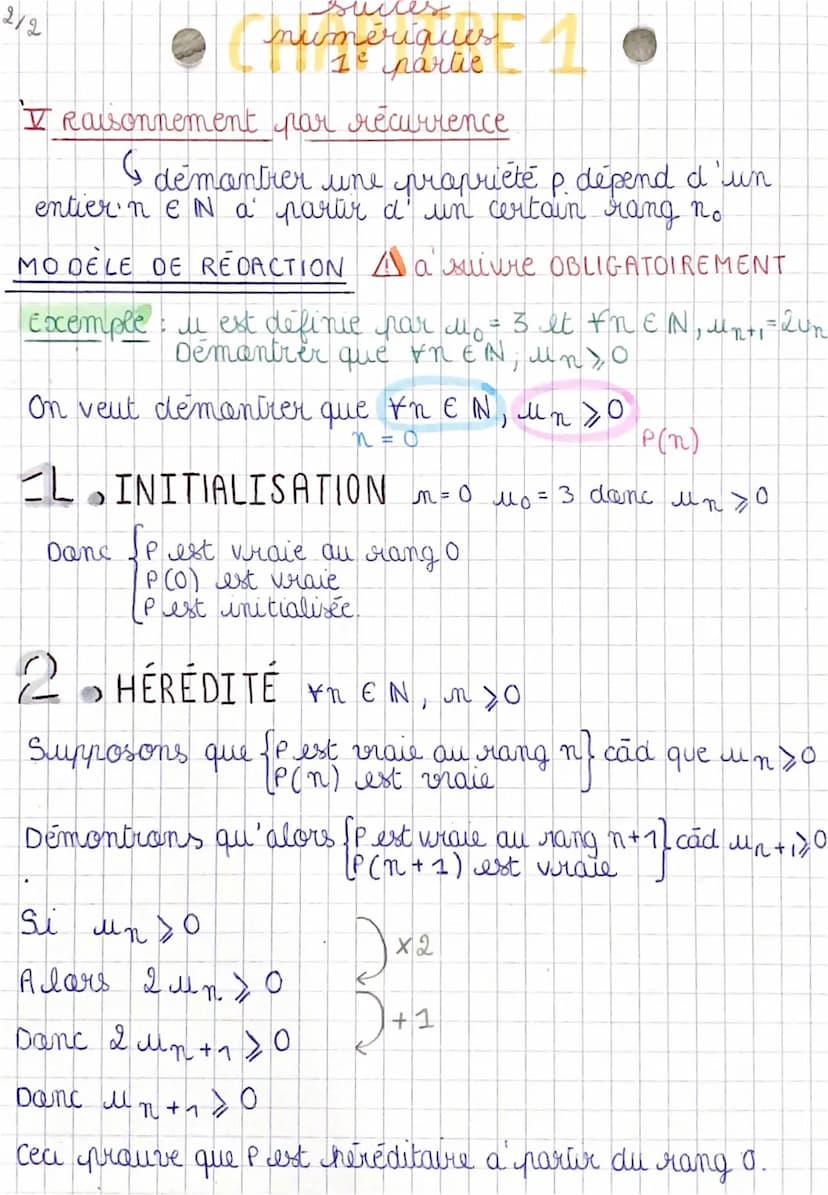 2/2
CHAPITRE 1
suites
numériques
1e partie
V Raisonnement par récurrence
↳ démontrer une propriété P. dépend d'un
entier n ∈ ℕ à partir d'un certain rang n₀
MODÈLE DE RÉDACTION ⚠ à suivre OBLIGATOIREMENT
Exemple : u est définie par u₀ = 3 et ∀n ∈ ℕ, uₙ₊₁ = 2uₙ
Démontrer que ∀n ∈ ℕ, uₙ ⩾ 0
On veut démontrer que ∀n ∈ ℕ, uₙ ⩾ 0
n = 0 P(n)
1. INITIALISATION n = 0 u₀ = 3 donc uₙ ⩾ 0
Donc { P est vraie au rang 0
P(0) est vraie
P est initialisée.
2. HÉRÉDITÉ ∀n ∈ ℕ, n ⩾ 0
Supposons que { P est vraie au rang n } càd que uₙ ⩾ 0
P(n) est vraie
Démontrons qu'alors { P est vraie au rang n+1 } càd uₙ₊₁ ⩾ 0
P(n+1) est vraie
Si uₙ ⩾ 0
×2
Alors 2uₙ ⩾ 0
+1
Donc 2uₙ₊₁ ⩾ 0
Donc uₙ₊₁ ⩾ 0
Ceci prouve que P est héréditaire à partir du rang 0.